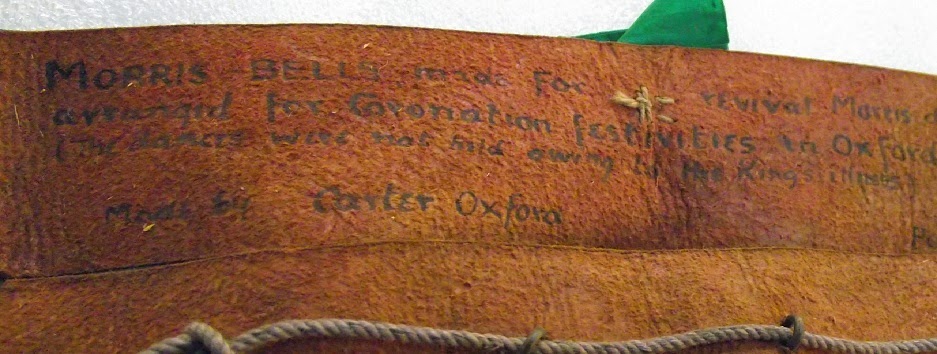 MORRIS BELLS made for revival Morris d
arranged for Coronation festivities in Oxford
(The dances were not held owing to the King's illness)
Made by Carter Oxford